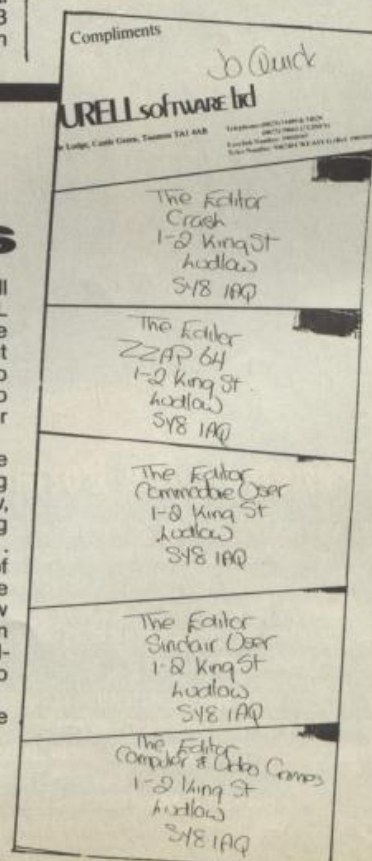 Compliments
Jo Quick
URELL SOFTWARE ltd
Lodge, Castle Green, Taunton TA1 4AB
The Editor
Crash
1-2 King St
Ludlow
SY8 1AQ
The Editor
ZZAP 64
1-2 King St.
Ludlow
SY8 1AQ
The Editor
Commodore User
1-2 King St
Ludlow
SY8 1AQ
The Editor
Sinclair User
1-2 King St
Ludlow
SY8 1AQ
The Editor
Computer & Video Games
1-2 King St
Ludlow
SY8 1AQ